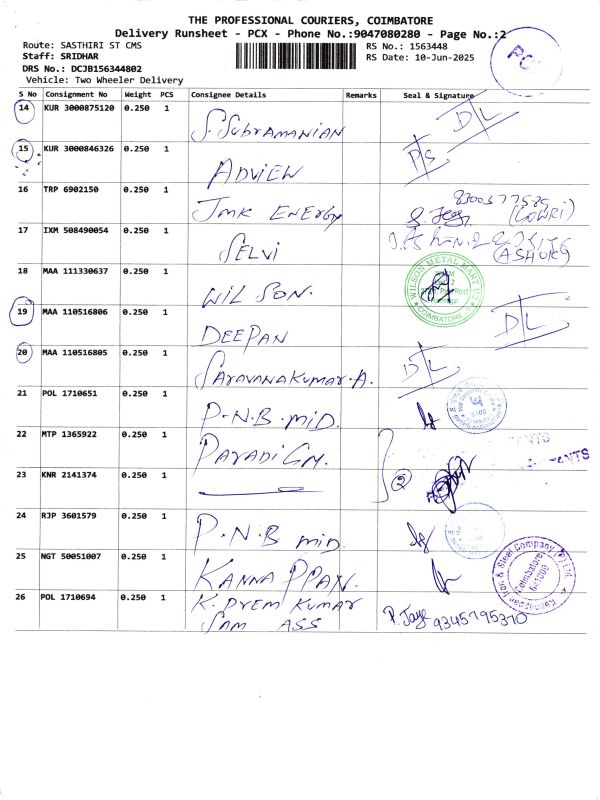 THE PROFESSIONAL COURIERS, COIMBATORE
Delivery Runsheet - PCX - Phone No.:9047080280 - Page No.:2
Route: SASTHIRI ST CMS
RS No.: 1563448
Staff: SRIDHAR
RS Date: 10-Jun-2025
DRS No.: DCJB156344802
Vehicle: Two Wheeler Delivery
S No Consignment No Weight PCS Consignee Details Remarks Seal & Signature
14 KUR 3000875120 0.250 1 S. Subramanian D/L
15 KUR 3000846326 0.250 1 ADVIEW P/S
16 TRP 6902150 0.250 1 JMK ENERGY (GOWRI)
17 IXM 508490054 0.250 1 SELVI (ASHOK)
18 MAA 111330637 0.250 1 WILSON. WILSON METAL MART COIMBATORE
19 MAA 110516806 0.250 1 DEEPAN D/L
20 MAA 110516805 0.250 1 SARAVANAKUMAR.A. D/L
21 POL 1710651 0.250 1 P.N.B MID.
22 MTP 1365922 0.250 1 PARADIGM.
23 KNR 2141374 0.250 1 2
24 RJP 3601579 0.250 1 P.N.B MID.
25 NGT 50051007 0.250 1 KANNAPPAN. Kannappan Iron & Steel Company (P) Ltd. Coimbatore
26 POL 1710694 0.250 1 K. PREM KUMAR
SAM ASS
P. Jaya 9345795370